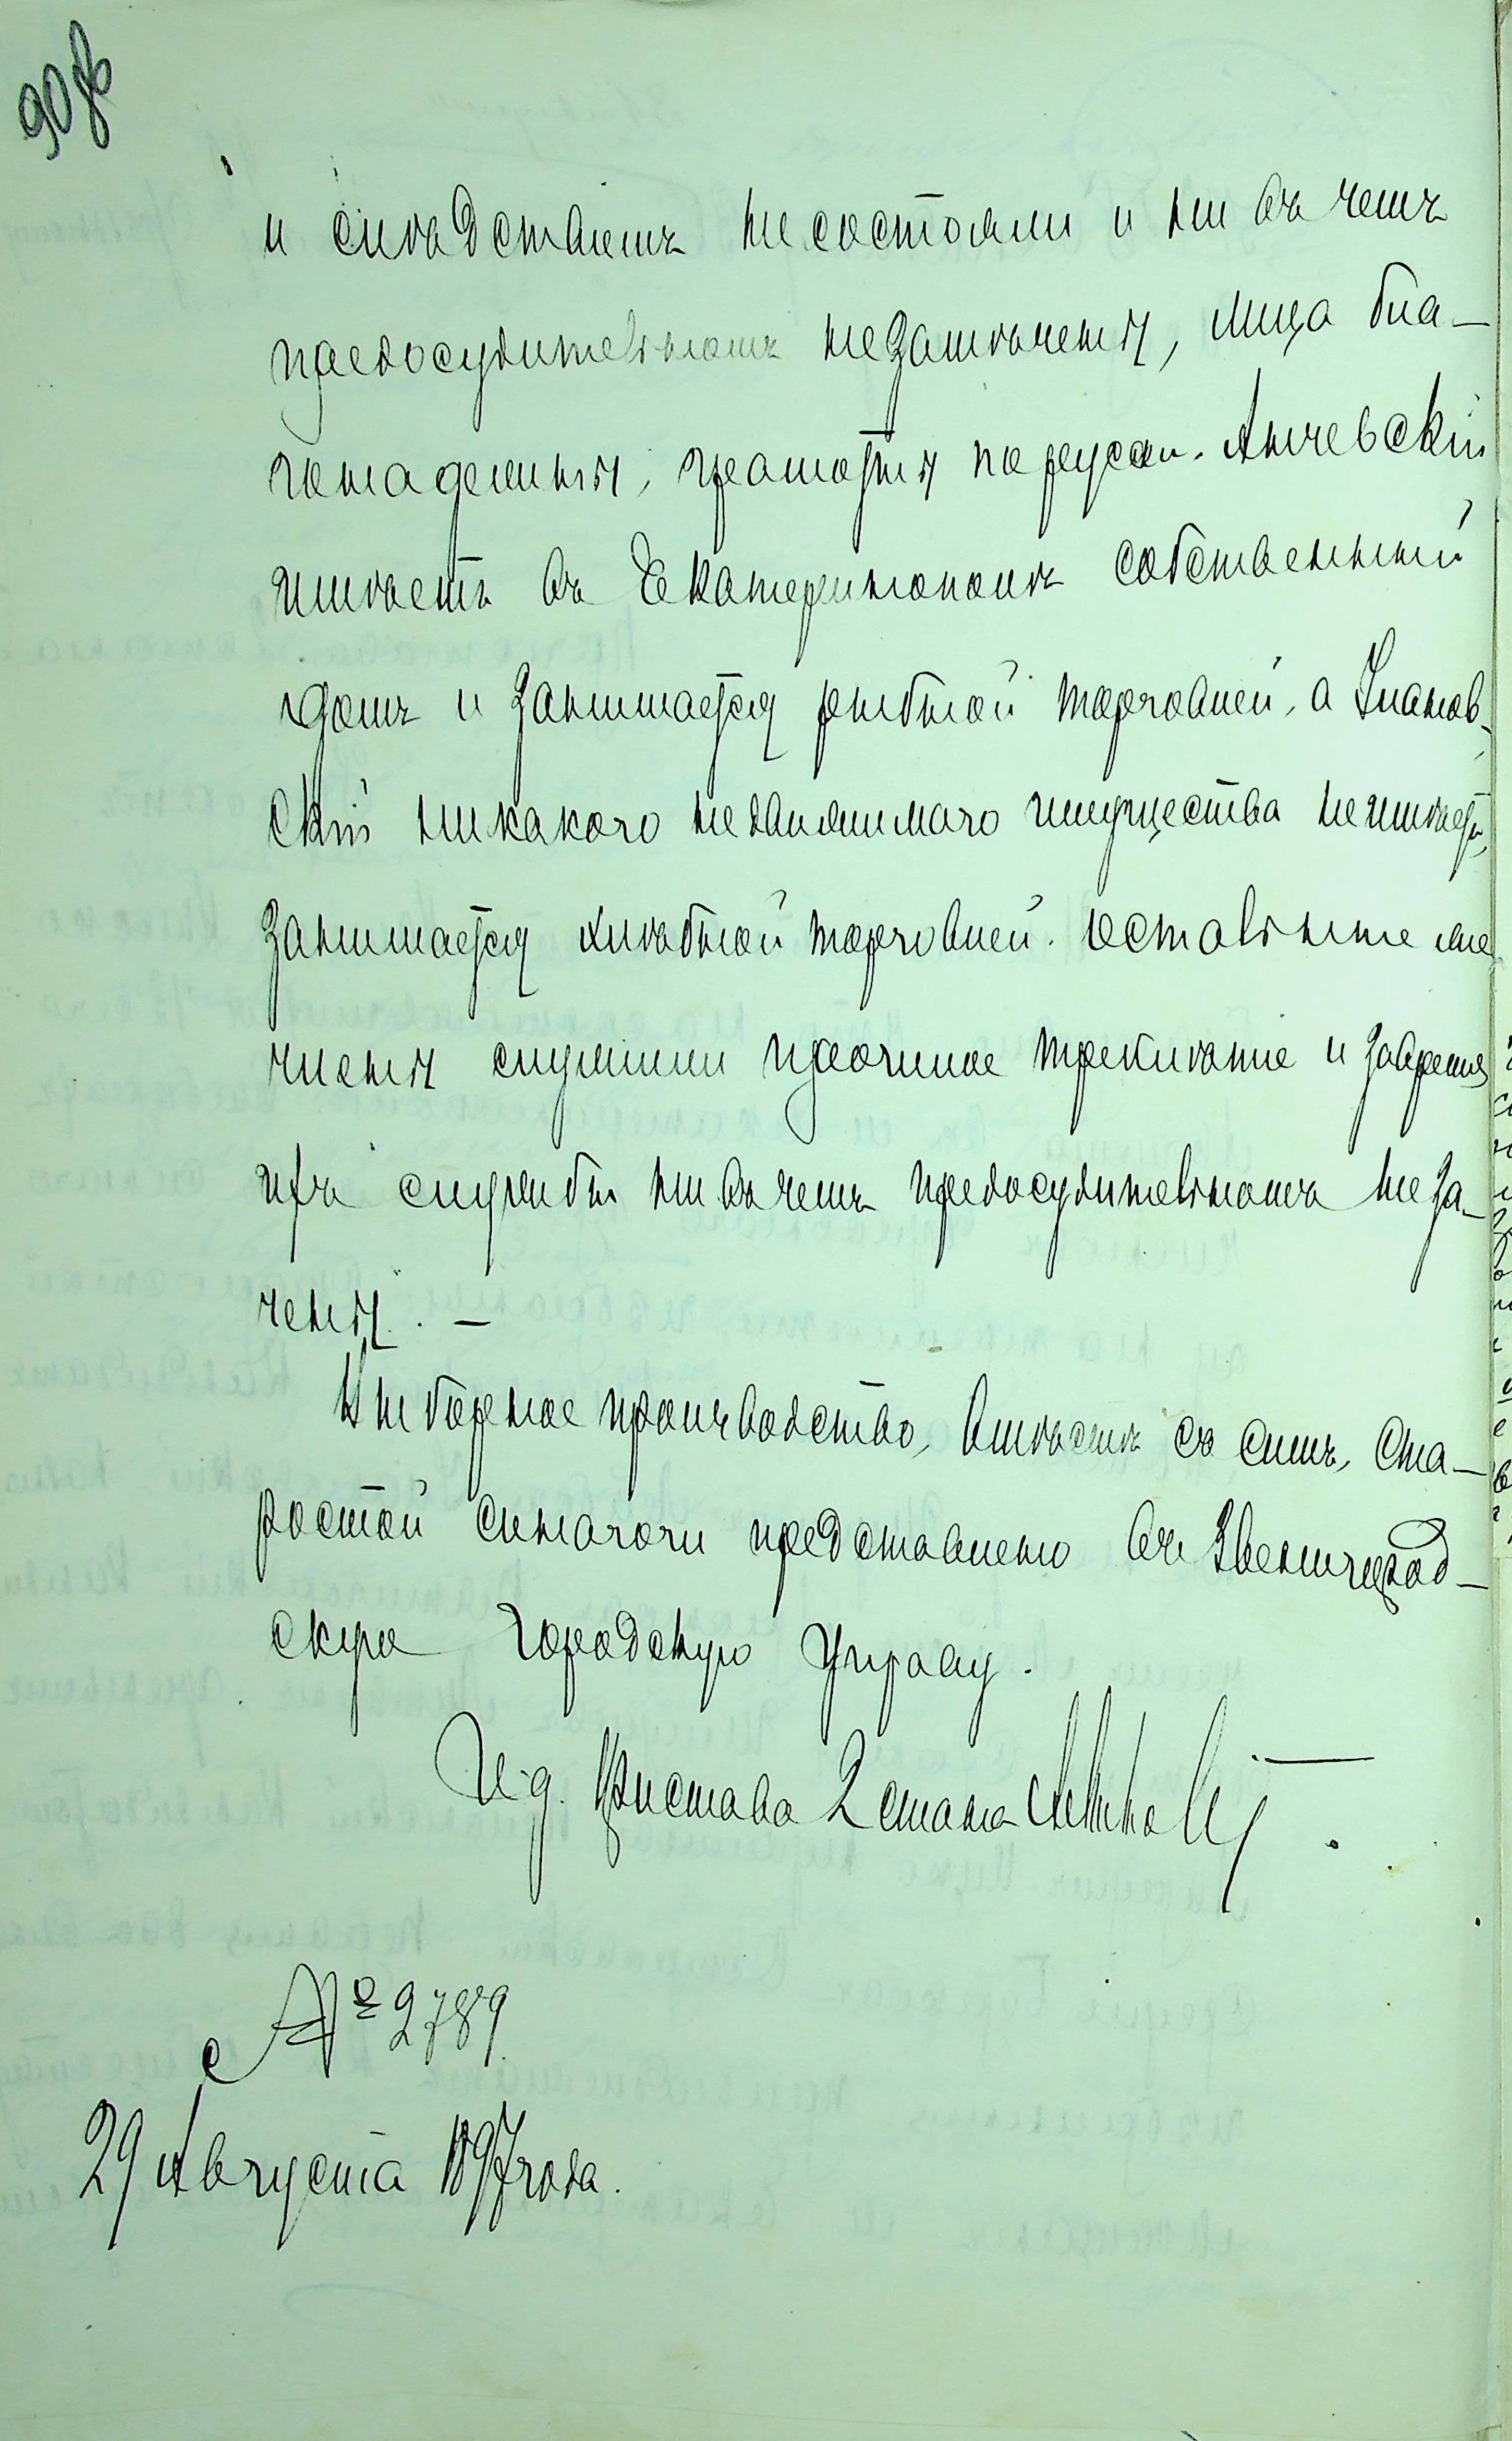 90 об
и слѣдствіемъ не состояли и ни въ чемъ
предосудительномъ не замѣчены, лица бла-
гонадежныя, грамотны по русски. Анчевскій
имѣетъ въ Екатеринополѣ собственный
домъ и занимается рыбной торговлей, а
скій никакого недвижимаго имущества не имѣетъ,
занимается хлѣбной торговлей. Остальные же
члены служили прошлое трехлѣтіе и за время
ихъ службы ни въ чемъ предосудительномъ не за-
чены. —
Выборное производство, вмѣстѣ съ симъ, ста-
ростой синагоги представлено въ Звенигород-
скую Городскую Управу.
И. д. Пристава 2 стана
№ 2789
29 Августа 1897 года.